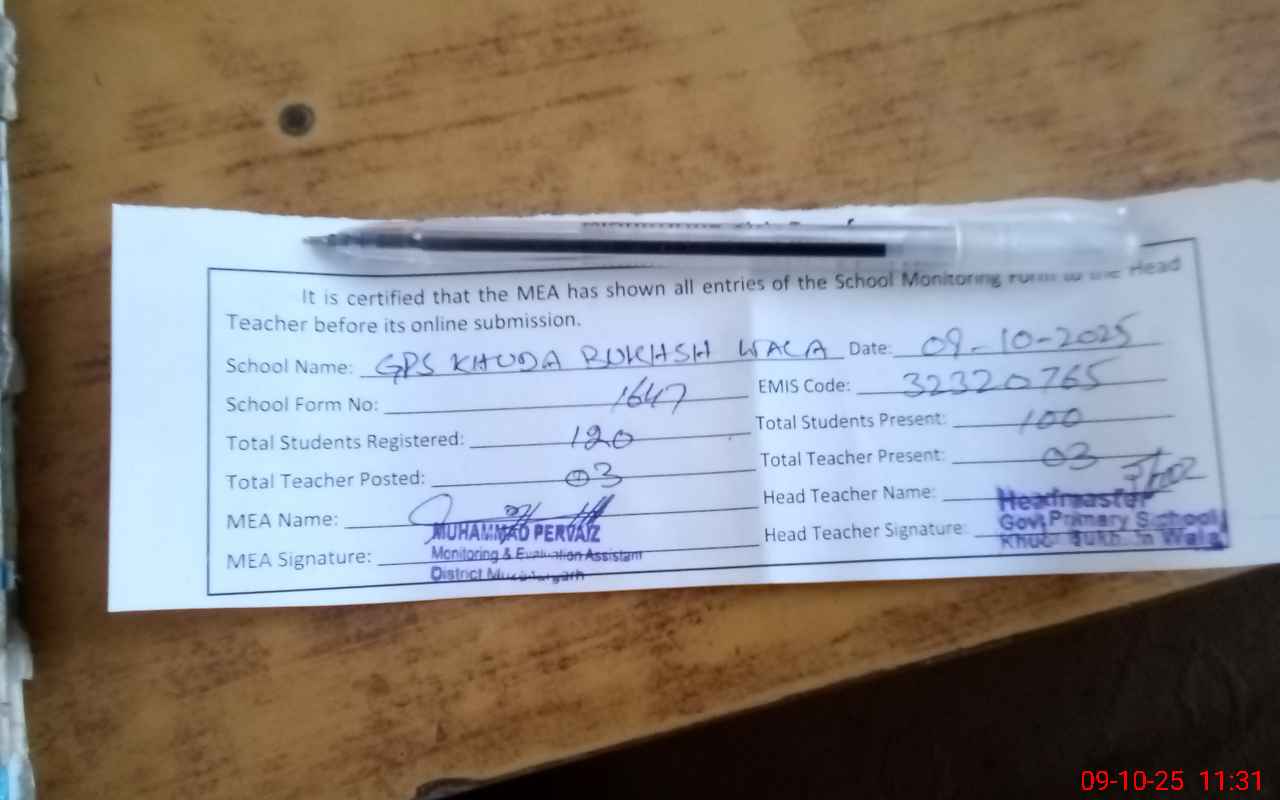 It is certified that the MEA has shown all entries of the School Monitoring Form to the Head
Teacher before its online submission.
School Name: GPS KHUDA BUKHSH WALA Date: 09-10-2025
School Form No: 1647 EMIS Code: 32320765
Total Students Registered: 120 Total Students Present: 100
Total Teacher Posted: 03 Total Teacher Present: 03
MEA Name: Head Teacher Name:
MUHAMMAD PERVAIZ Headmaster
MEA Signature: Head Teacher Signature:
Monitoring & Evaluation Assistant Govt Primary School
District Wala
09-10-25 11:31